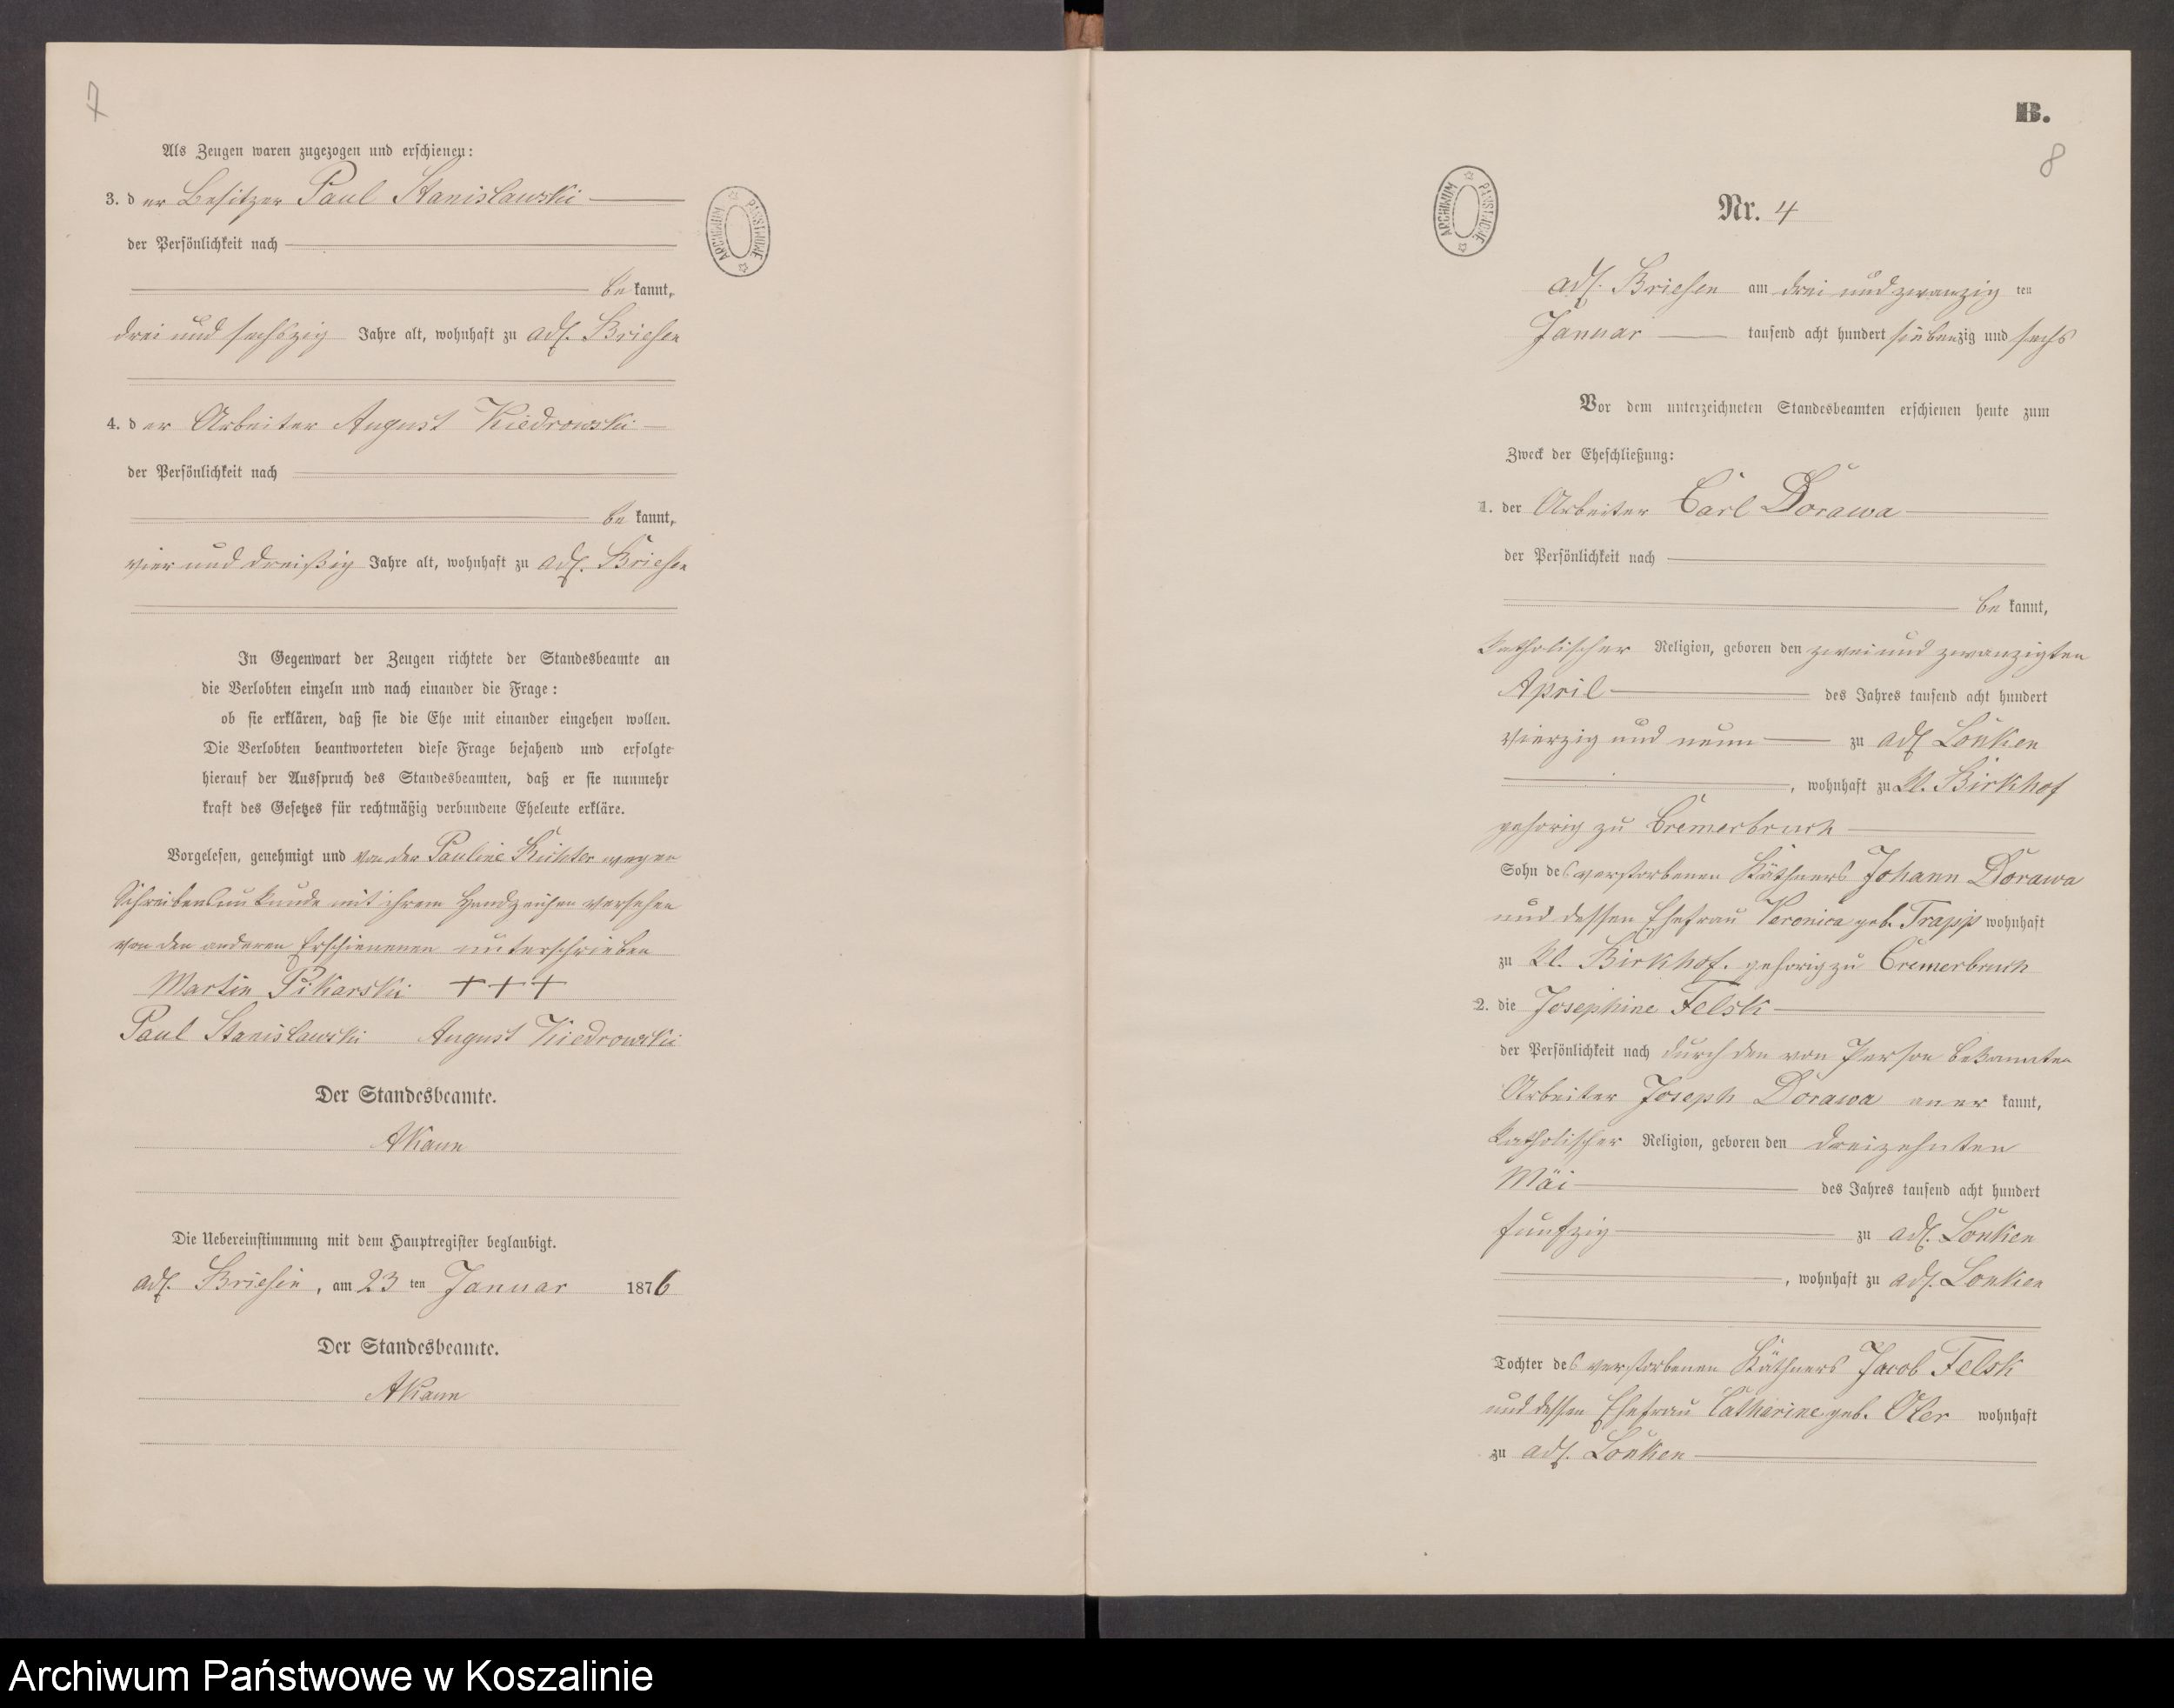 7
Als Zeugen waren zugezogen und erschienen:
3. der Besitzer Paul Stanislawski
der Persönlichkeit nach
bekannt,
drei und sechszig Jahre alt, wohnhaft zu adl. Briesen
4. der Arbeiter August Kiedrowski
der Persönlichkeit nach
bekannt,
vier und dreißig Jahre alt, wohnhaft zu adl. Briesen
In Gegenwart der Zeugen richtete der Standesbeamte an
die Verlobten einzeln und nach einander die Frage:
ob sie erklären, daß sie die Ehe mit einander eingehen wollen.
Die Verlobten beantworteten diese Frage bejahend und erfolgte
hierauf der Ausspruch des Standesbeamten, daß er sie nunmehr
kraft des Gesetzes für rechtmäßig verbundene Eheleute erkläre.
Vorgelesen, genehmigt und von der Pauline Richter wegen
Schreibensunkunde mit ihrem Handzeichen versehen
von den anderen Erschienenen unterschrieben
Martin Pikarski +++
Paul Stanislawski August Kiedrowski
Der Standesbeamte.
Die Uebereinstimmung mit dem Hauptregister beglaubigt.
adl. Briesen, am 23 ten Januar 1876
Der Standesbeamte.
ARCHIWUM PAŃSTWOWE
B.
8
ARCHIWUM PAŃSTWOWE
Nr. 4
adl. Briesen am drei und zwanzig ten
Januar tausend acht hundert siebenzig und sechs
Vor dem unterzeichneten Standesbeamten erschienen heute zum
Zweck der Eheschließung:
1. der Arbeiter Carl Dorawa
der Persönlichkeit nach
bekannt,
katholischer Religion, geboren den zwei und zwanzigten
April des Jahres tausend acht hundert
vierzig und neun zu adl Lonken
, wohnhaft zu Kl. Birkhof
gehorig zu Cremerbruch
Sohn des verstorbenen Käthners Johann Dorawa
und dessen Ehefrau Veronica geb. Trapp wohnhaft
zu Kl. Birkhof. gehorig zu Cremerbruch
2. die Josephine Felsk
der Persönlichkeit nach durch den von Person bekannten
Arbeiter Joseph Dorawa anerkannt,
katholischer Religion, geboren den dreizehnten
Mai des Jahres tausend acht hundert
funfzig zu adl. Lonken
, wohnhaft zu adl. Lonken
Tochter des verstorbenen Käthners Jacob Felsk
und dessen Ehefrau Catharine geb. wohnhaft
zu adl. Lonken
Archiwum Państwowe w Koszalinie